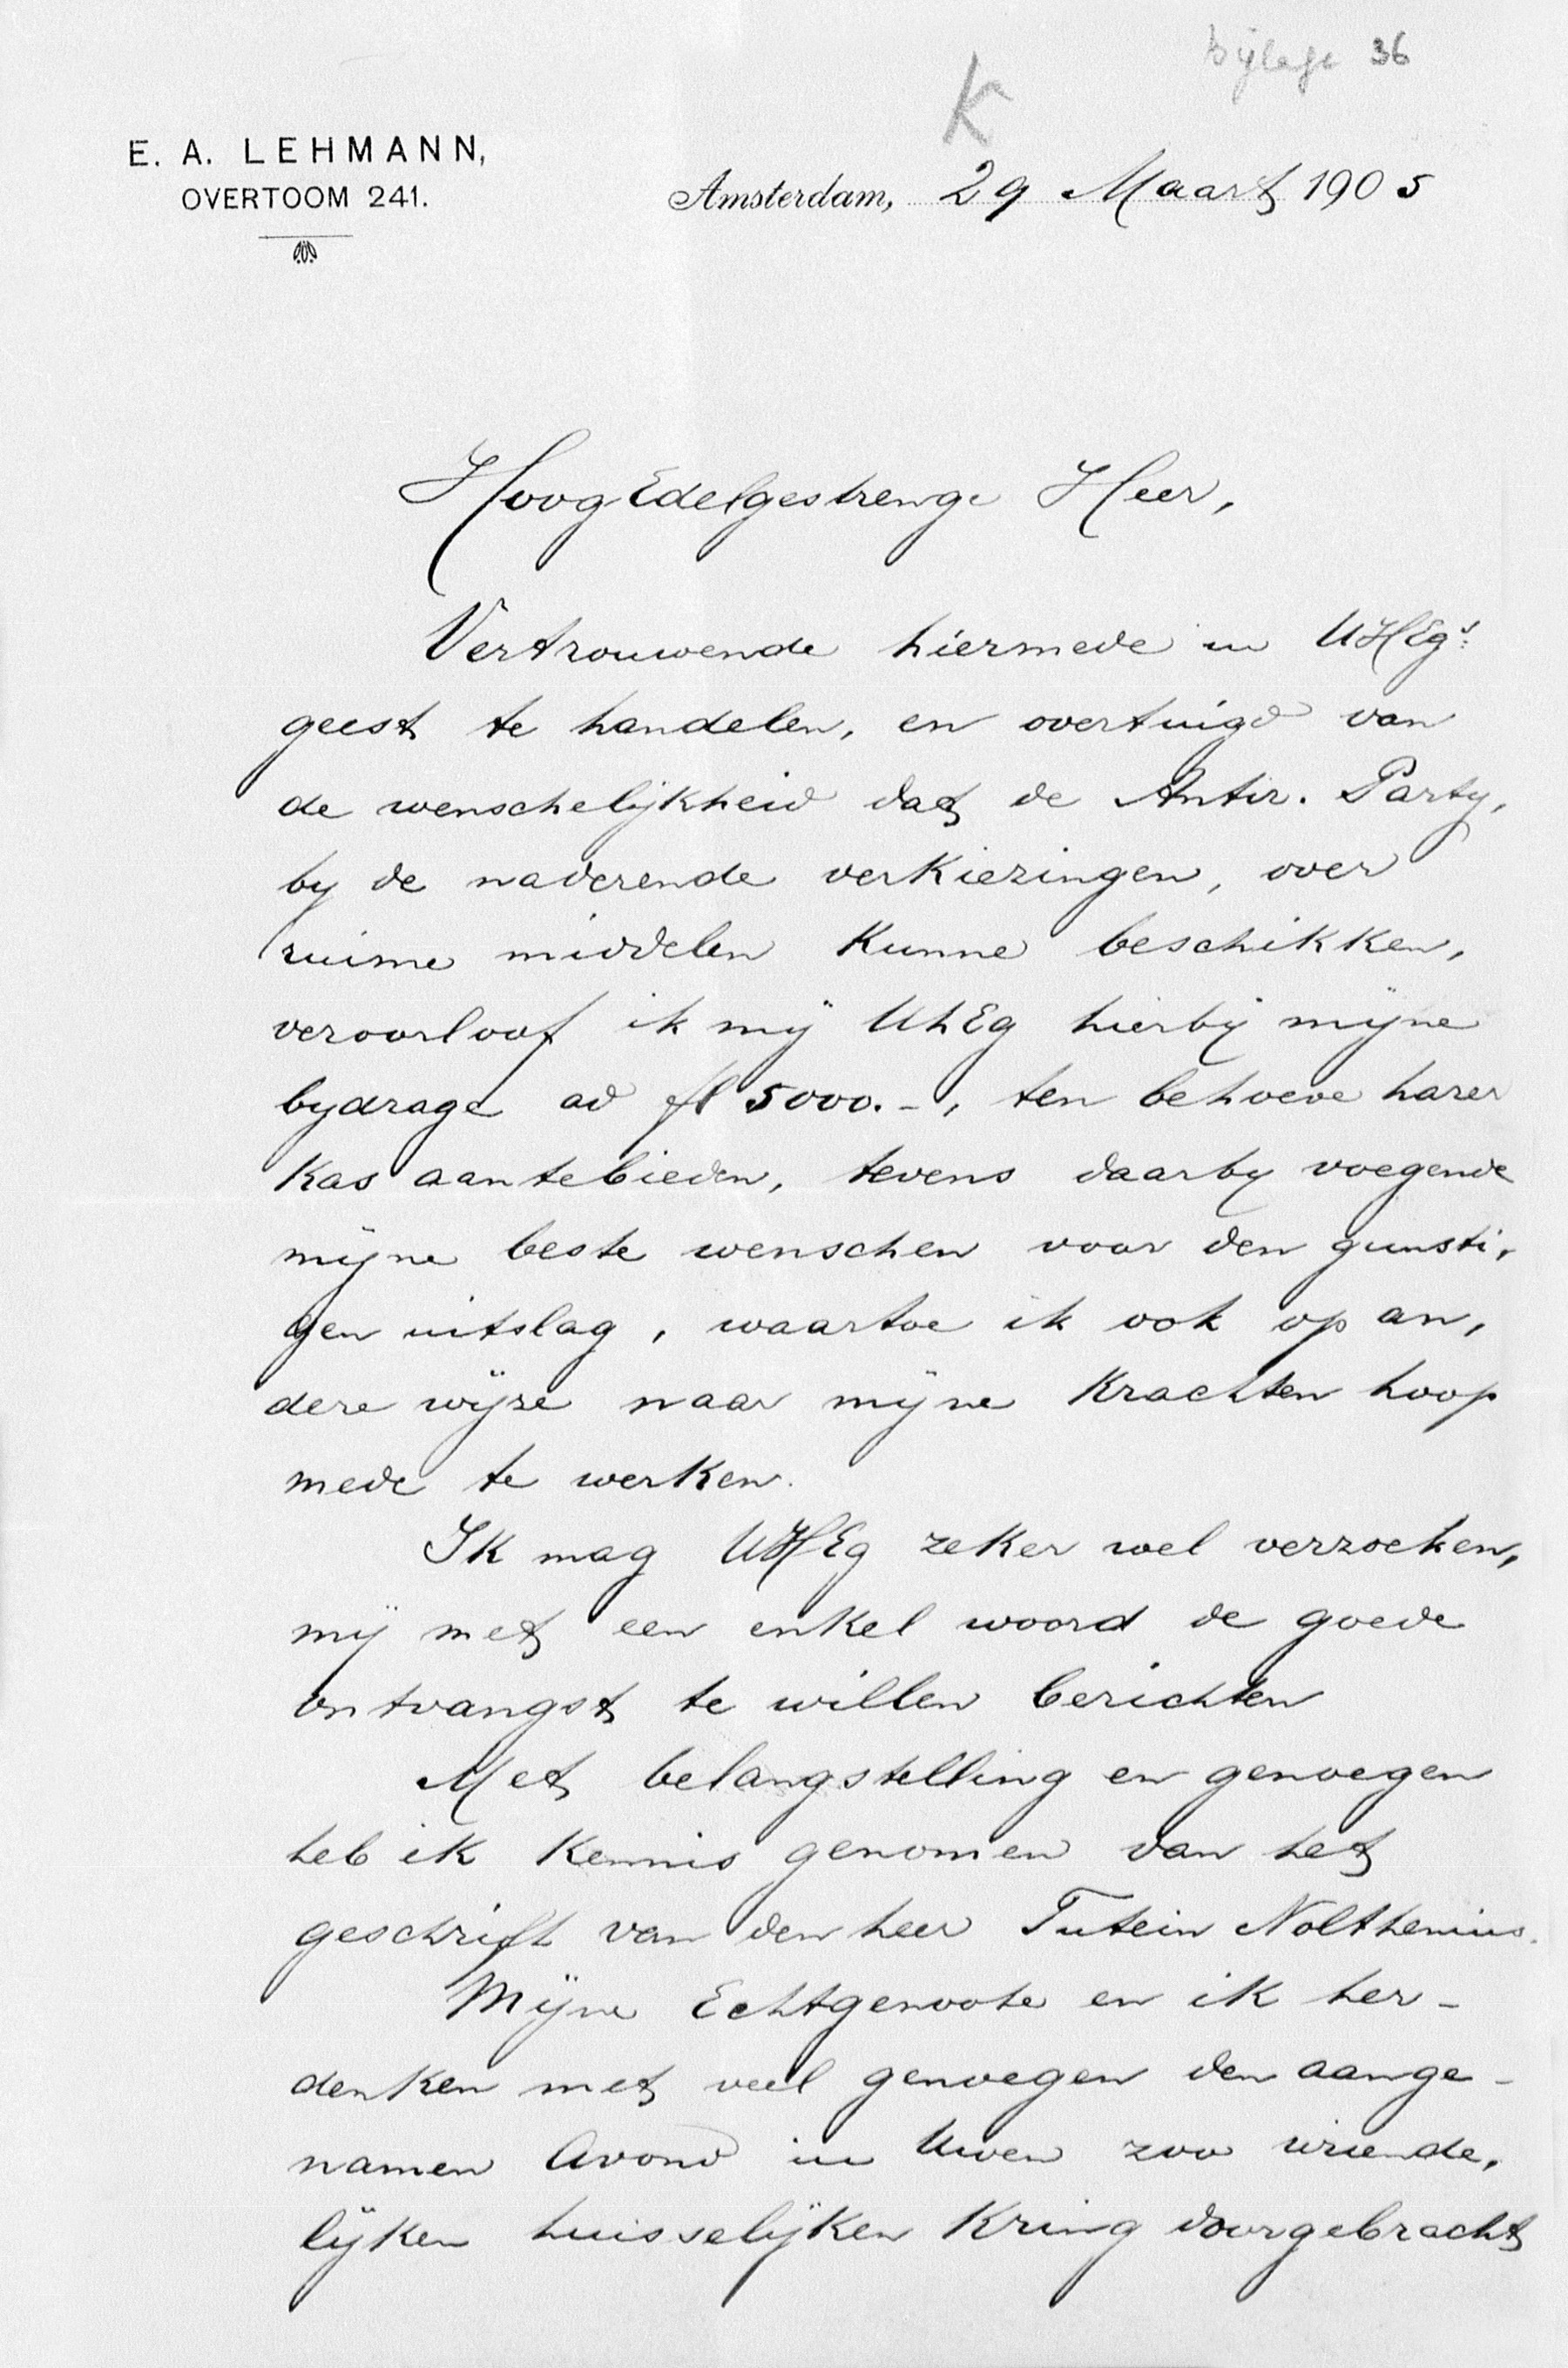 bijlage 36
K
E. A. LEHMANN,
OVERTOOM 241.
Amsterdam, 29 Maart 1905
HoogEdelgestrenge Heer,
Vertrouwende hiermede in UHEgs.
geest te handelen, en overtuigd van
de wenschelijkheid dat de Antir. Party,
by de naderende verkiezingen, over
ruime middelen kunne beschikken,
veroorloof ik mij UhEg hierbij mijne
bydrage ad fl 5000.-, ten behoeve harer
Kas aantebieden, tevens daarby voegende
mijne beste wenschen voor den gunsti,
gen uitslag, waartoe ik ook op an,
dere wijze naar mijne Krachten hoop
mede te werken.
Ik mag UHEg zeker wel verzoeken,
mij met een enkel woord de goede
ontvangst te willen berichten
Met belangstelling en genoegen
heb ik Kennis genomen van het
geschrift van den heer Tutein Nolthenius.
Mijne Echtgenoote en ik her-
denken met veel genoegen den aange-
namen Avond in Uwen zoo vriende,
lijken huisselijken Kring doorgebracht